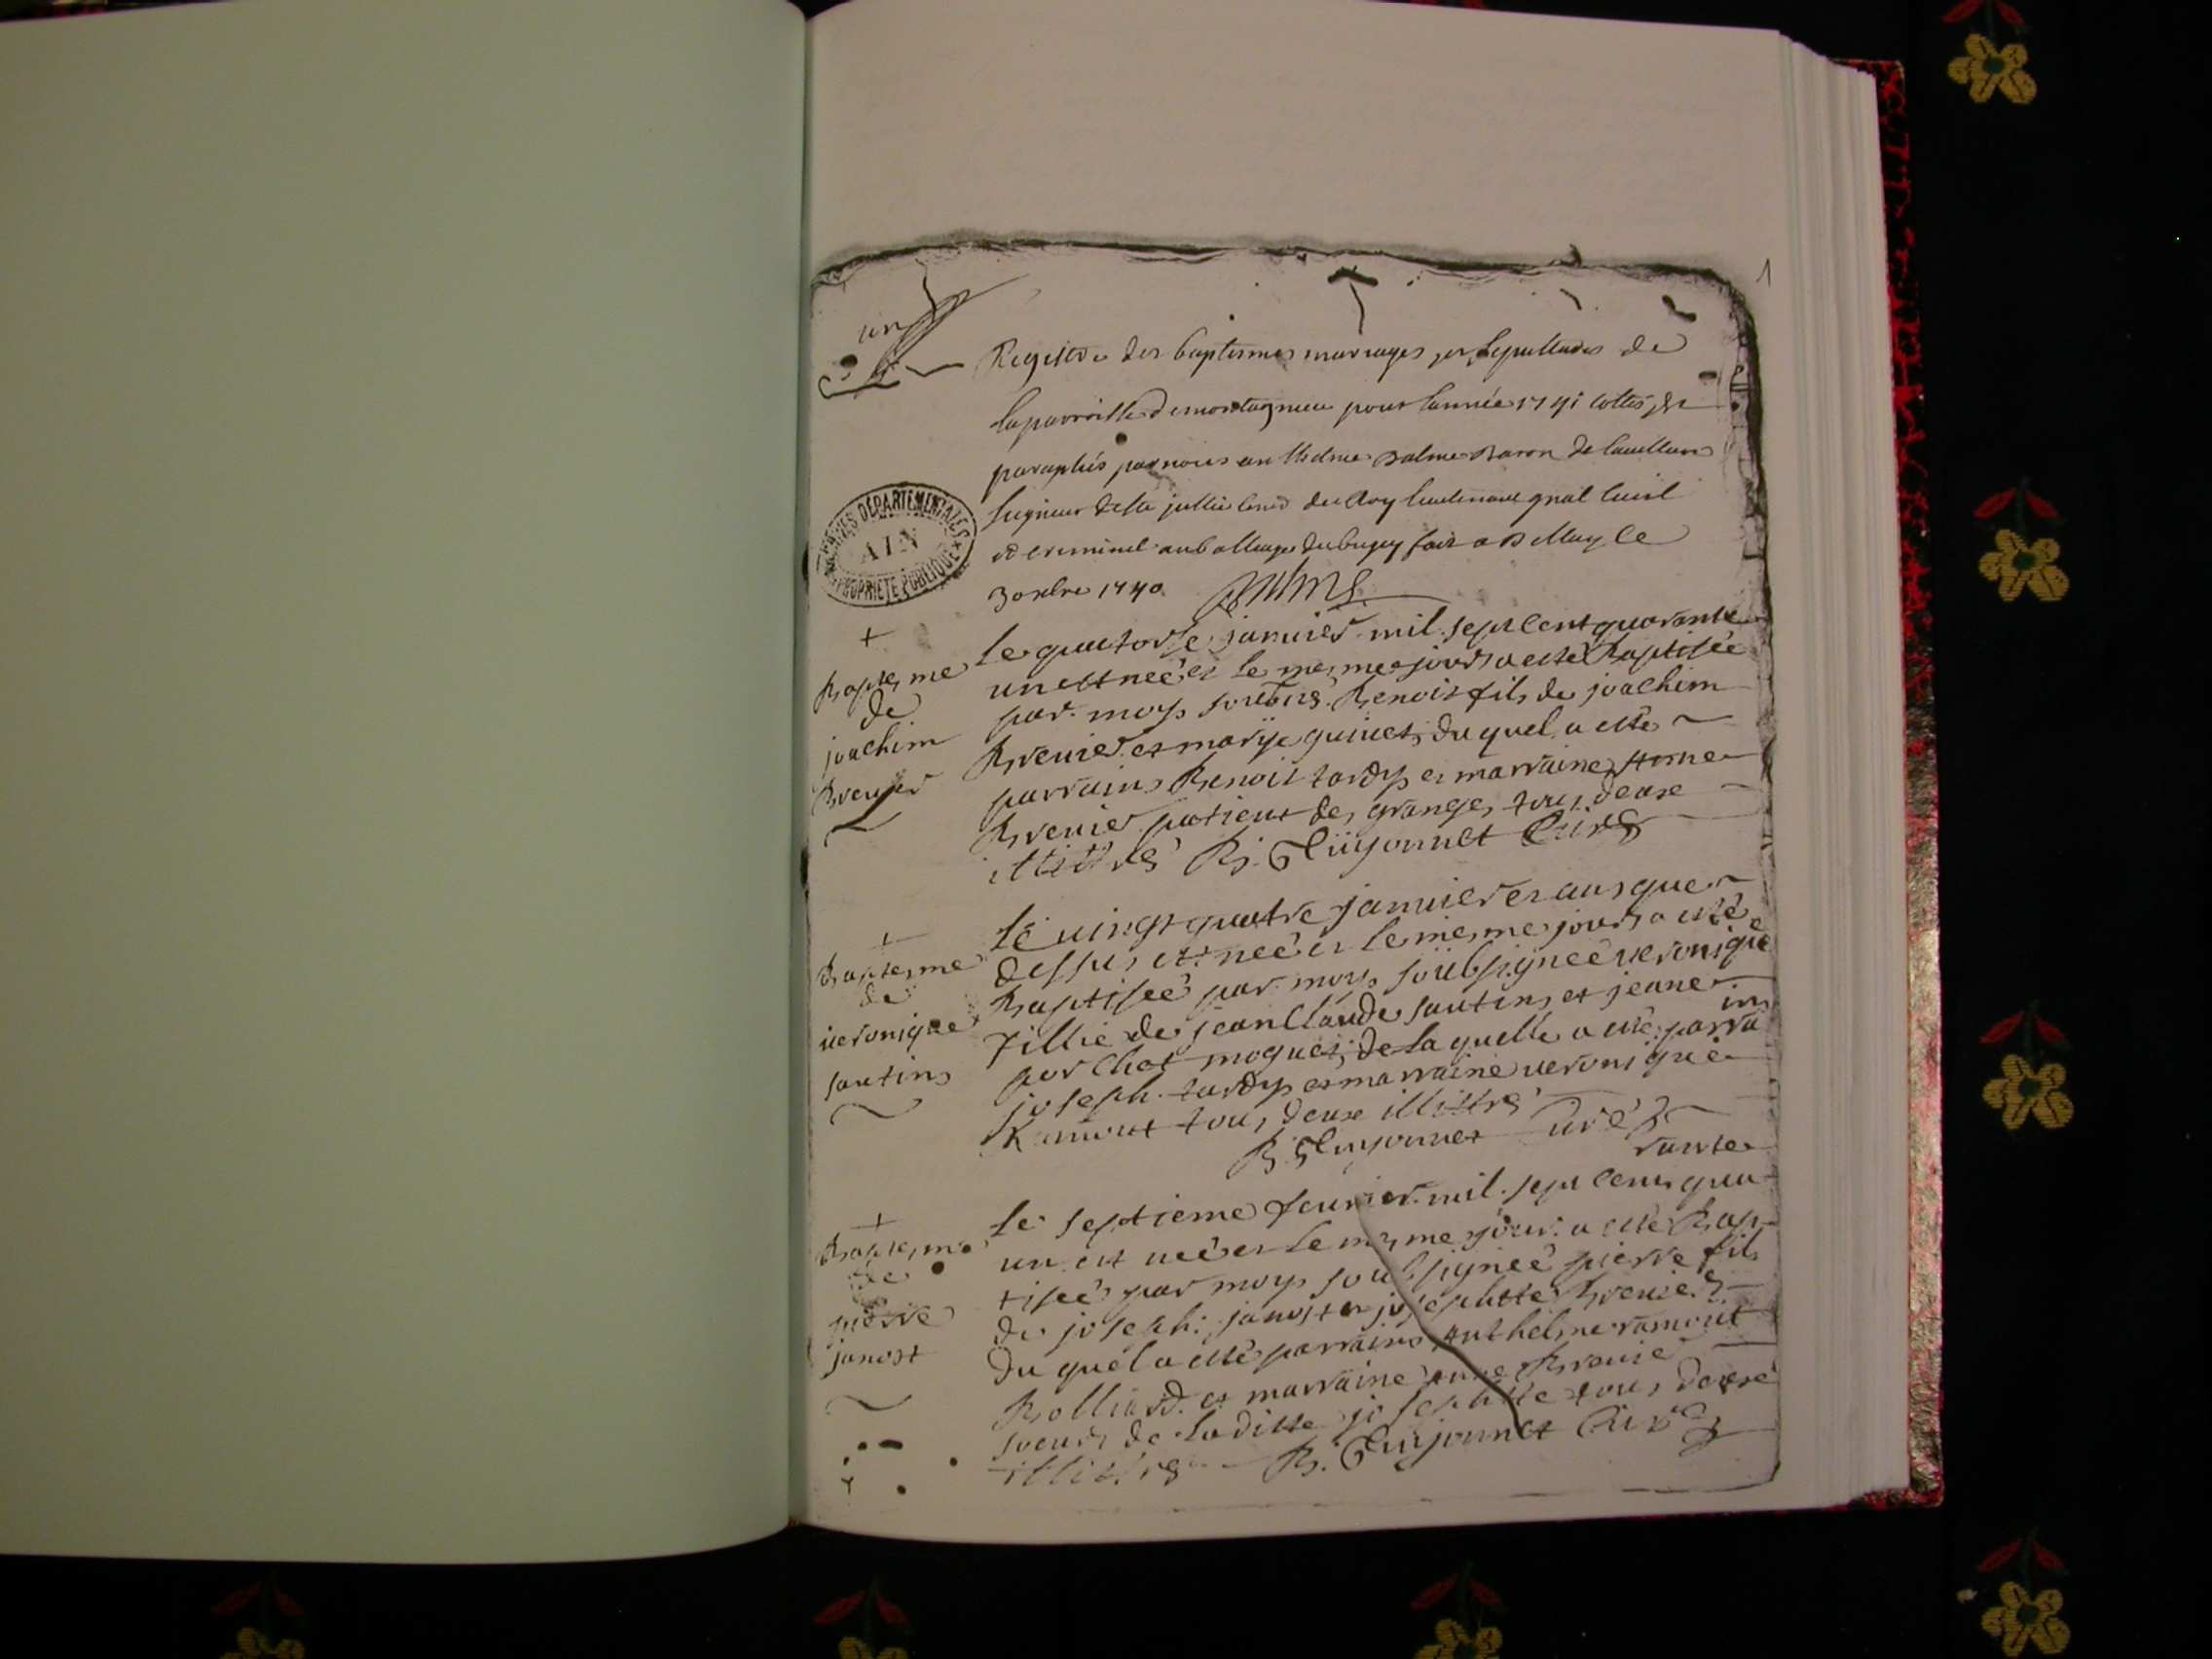 1
un
Registre des baptesmes mariages et sepultures de
la parroisse de montagnieu pour lannée 1741 cottés et
paraphés par nous anthelme Balme Baron de
seigneur de Ste jullie cons du Roy lieutenant gnal civil
et criminel au balliage du bugey fait a Belley le
3 1740 Balme
ARCHIVES DEPARTEMENTALES
AIN
PROPRIETE PUBLIQUE
+
Baptesme
de
joachim
Brenier
le quatorse janvier mil sept cent quarante
un est neé et le mesme jour a esté Baptisée
par moy Benoit fils de joachim
Brenier et marye guinet, du quel a esté
parrain Benoit tardy et marraine
Brenier des granges tous deux
illittré B. Guyonnet Curé
+
Baptesme
de
veronique
santin
Le vingt quatre janvier et an que
dessus est neé et le mesme jour a esté
Baptiseé par moy soubsigneé veronique
fillie de jean Claude santin et jeane
porchet de la quelle a esté parra
in
joseph tardy et marraine veronique
Ramout tous deux illittré
B. Guyonnet Curé
+
Baptesme
de
pierre
janost
rante
le septieme feurier mil sept cent qua
un est neé et le mesme jour a esté Bap
tiseé par moy soubsigneé pierre fils
de joseph janost et josephtte Brenier
du quel a esté parrain anthelme ramout
Rolliard et marraine anne Brenie
soeur de laditte josephtte tous deux
illittré B. Guyonnet Curé